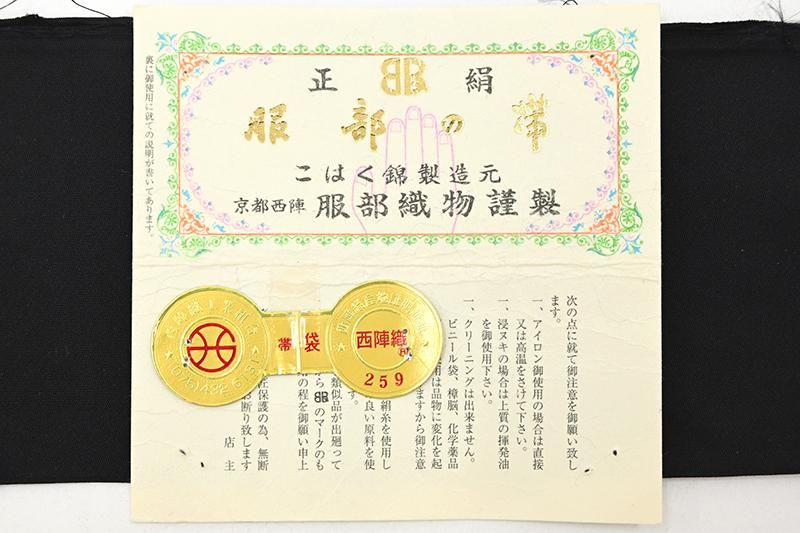 裏に御使用に就ての説明が書いてあります。
正 絹
服部の帯
こはく錦製造元
京都西陣 服部織物謹製
西陣織
259
袋
帯
次の点に就て御注意を御願い致し
ます。
一、アイロン御使用の場合は直接
又は高温をさけて下さい。
一、浸ヌキの場合は上質の揮発油
を御使用下さい。
一、クリーニングは出来ません。
ビニール袋、樟脳、化学薬品
用は品物に変化を起
ますから御注意
絹糸を使用し
良い原料を使
類似品が出廻って
のマークのも
の程を御願い申上
保護の為、無断
お断り致します
店主